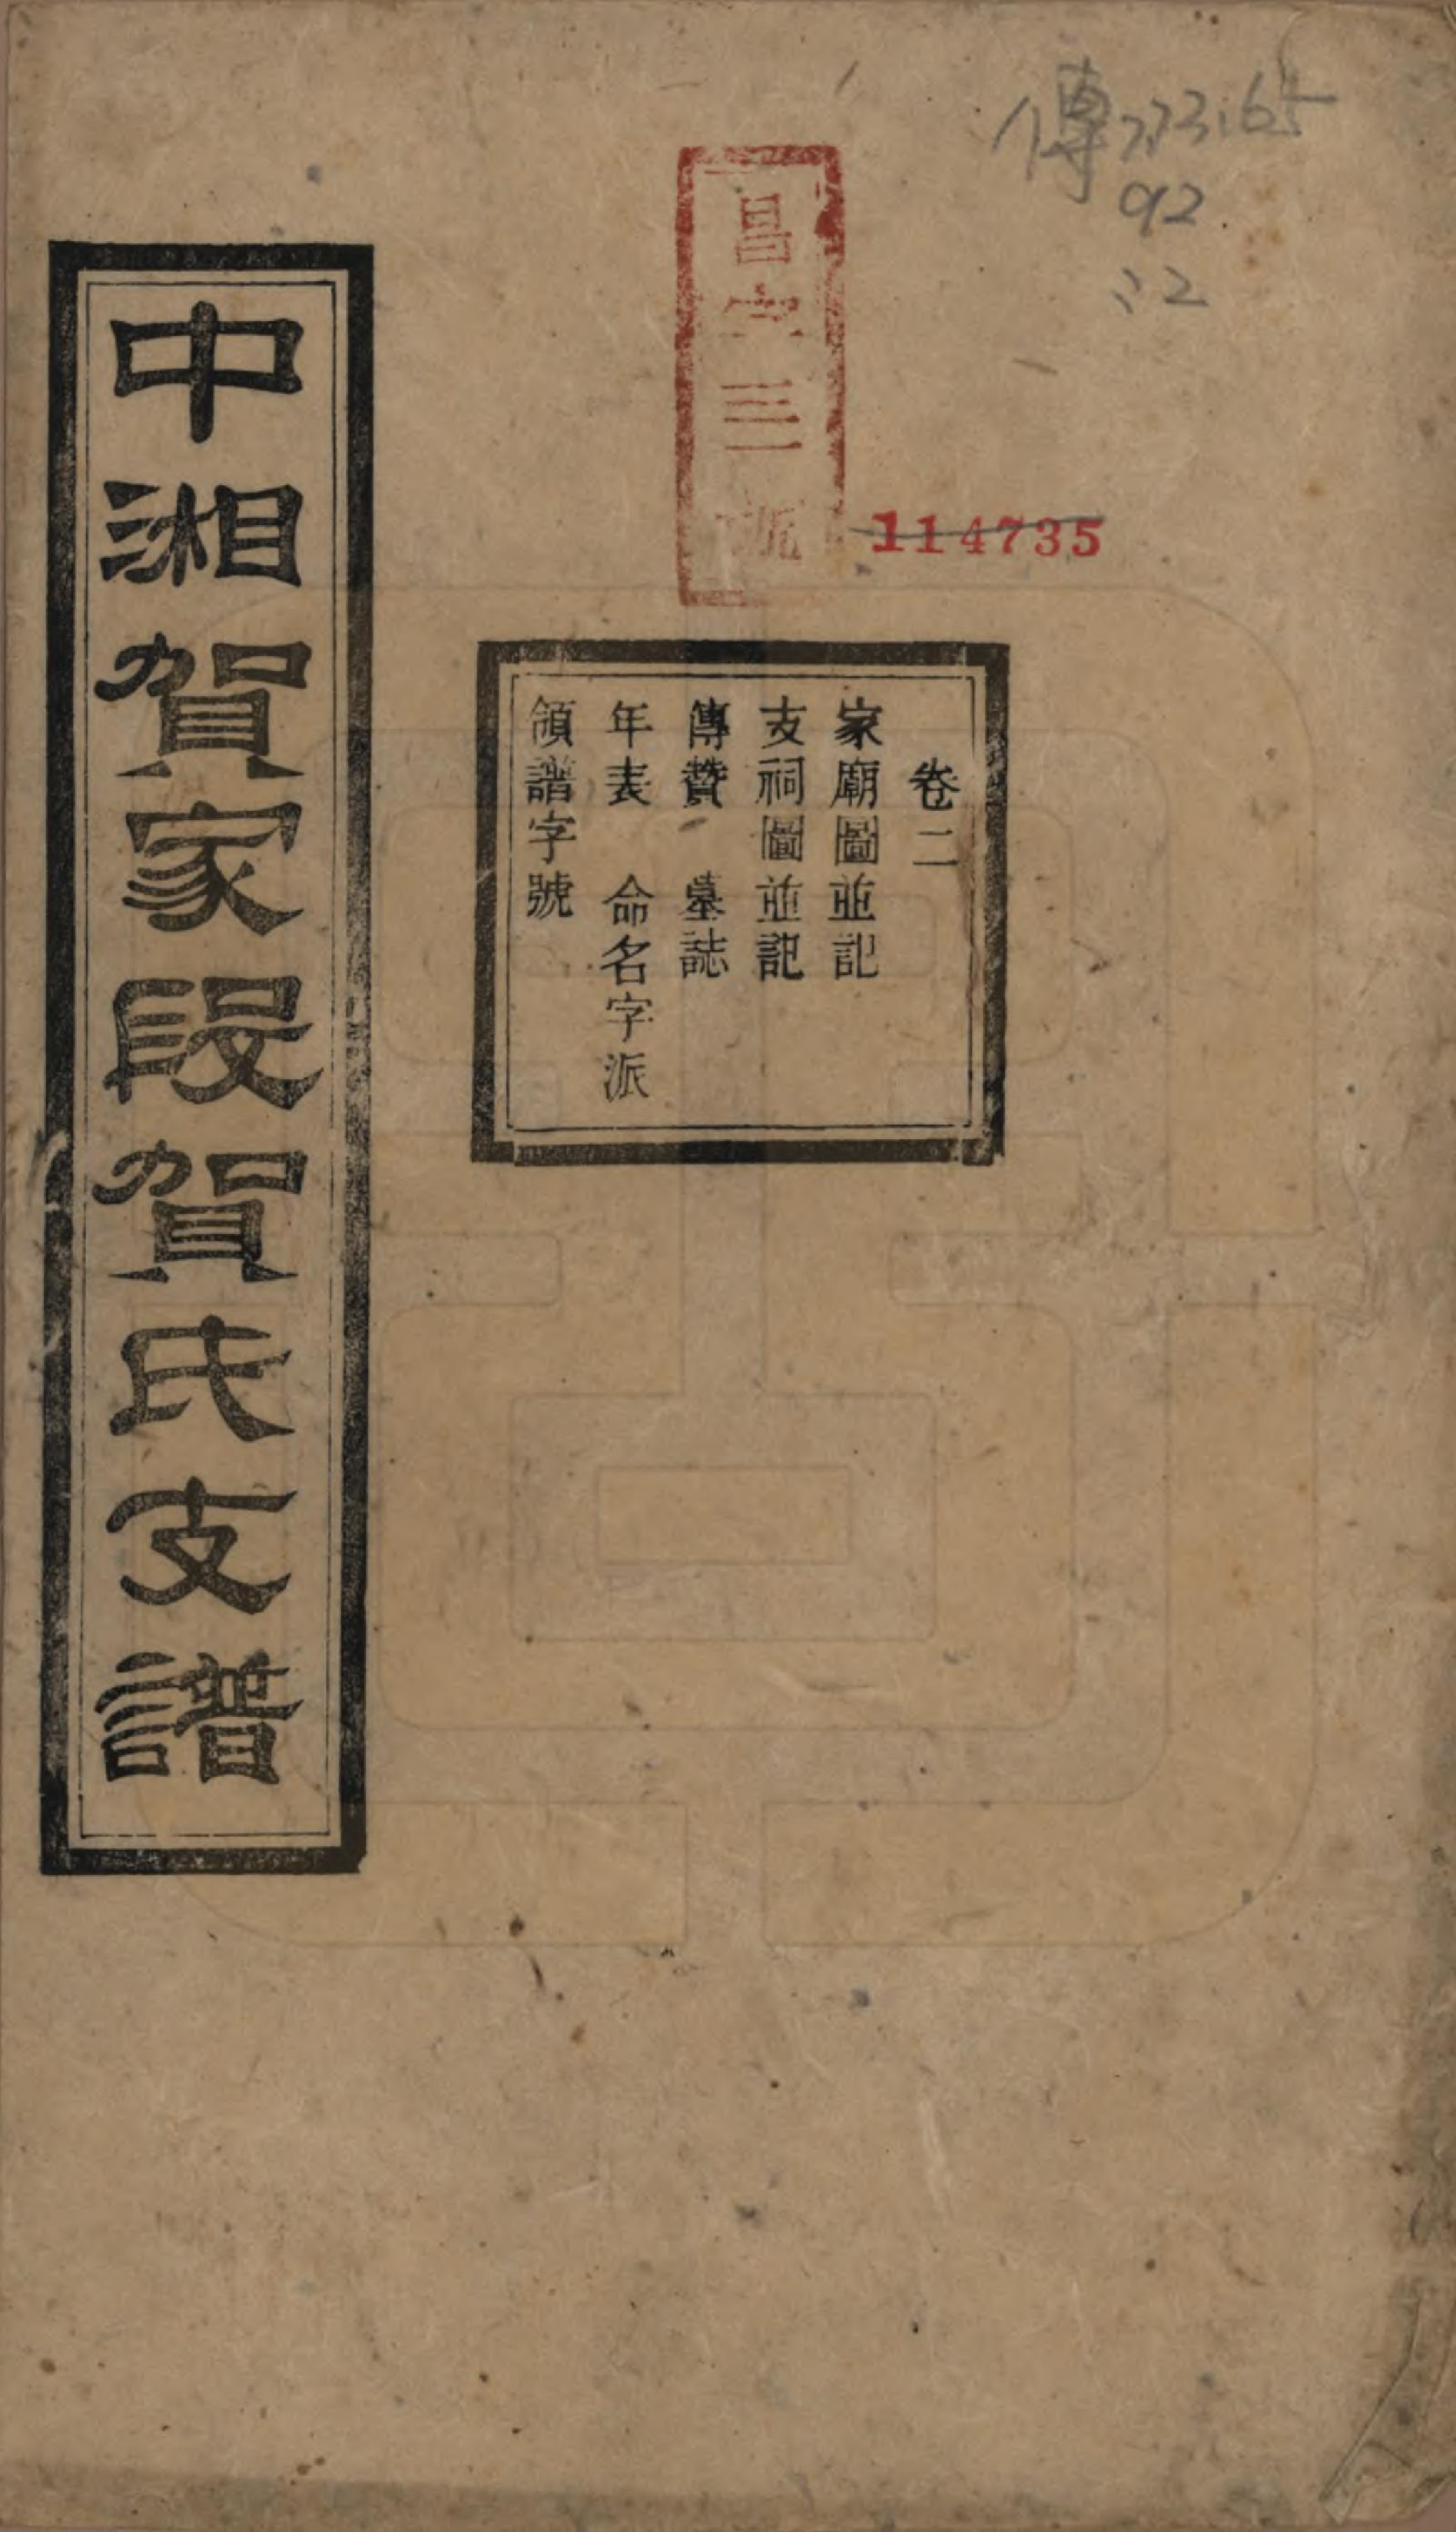 傳773.65
92
:2
昌字三號
114735
卷二
家廟圖並記
支祠圖並記
傳贊 墓誌
年表 命名字派
領譜字號
中湘賀家段賀氏支譜